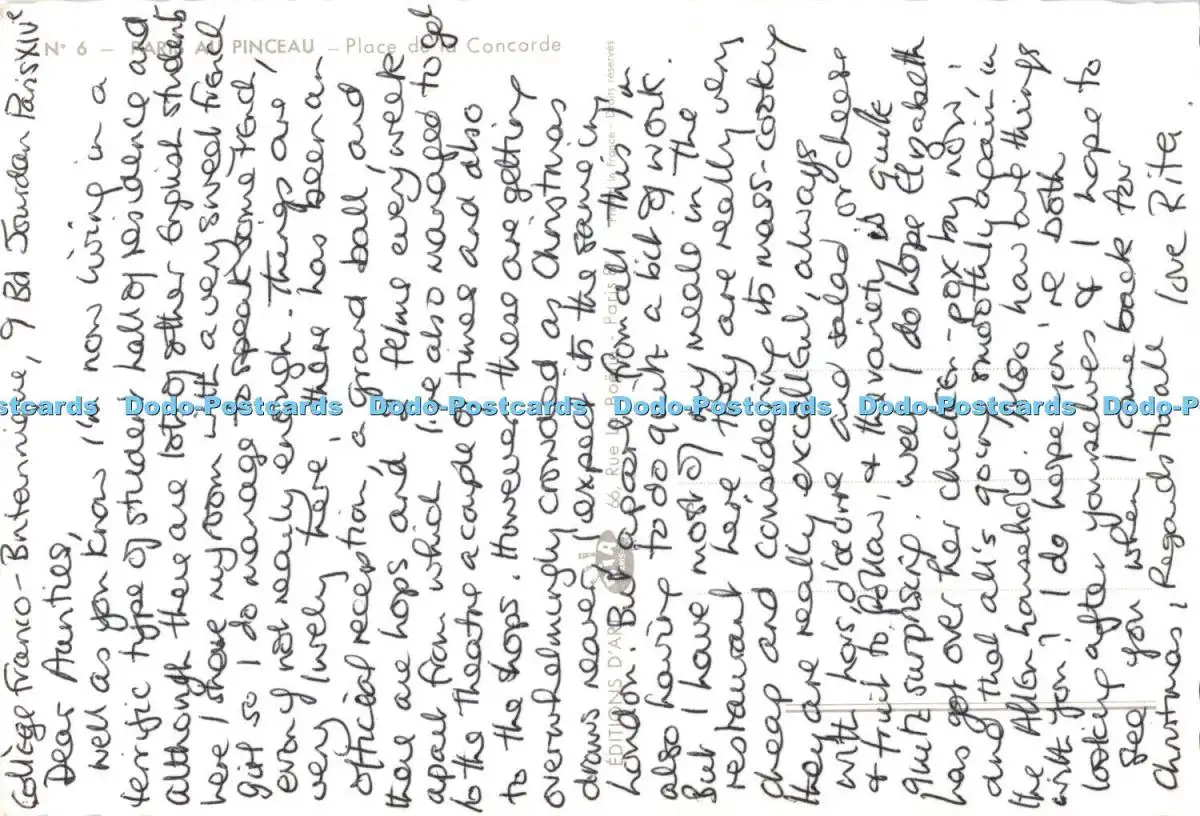 N° 6 – PARIS AU PINCEAU – Place de la Concorde
Collège Franco-Britannique, 9 Bd Jourdan Paris XIVe
Dear Aunties,
Well as you know I'm now living in a
terrific type of student hall of residence and
although there are lots of other English students
here I share my room with a very sweet French
girl so I do manage to speak some Fend,
even if not nearly enough. Things are
very lively here, there has been an
official reception, a grand ball, and
there are hops and films every week
apart from which I've also managed to get
to the theatre a couple of times and also
to the shops. However these are getting
overwhelmingly crowded as Christmas
draws nearer, I expect it's the same in
London. But apart from all this I'm
also having to do quite a bit of work.
But I have most of my meals in the
restaurant here, they are really very
cheap and considering its mass-cooking
they are really excellent, always
with hors d'œdre and salad or cheese
+ fruit to follow, + the variety is quite
quite surprising. Well I do hope Elizabeth
has got over her chicken-pox by now,
and that all's going smoothly again in
the Allen household. Also how are things
with you? I do hope you're both
looking after yourselves & I hope to
see you when I come back for
Christmas, Regards to all love Rita.
ÉDITIONS D'ART
66, Rue La Boétie - Paris
Made in France - Droits réservés
Dodo-Postcards Dodo-Postcards Dodo-Postcards Dodo-Postcards Dodo-Postcards